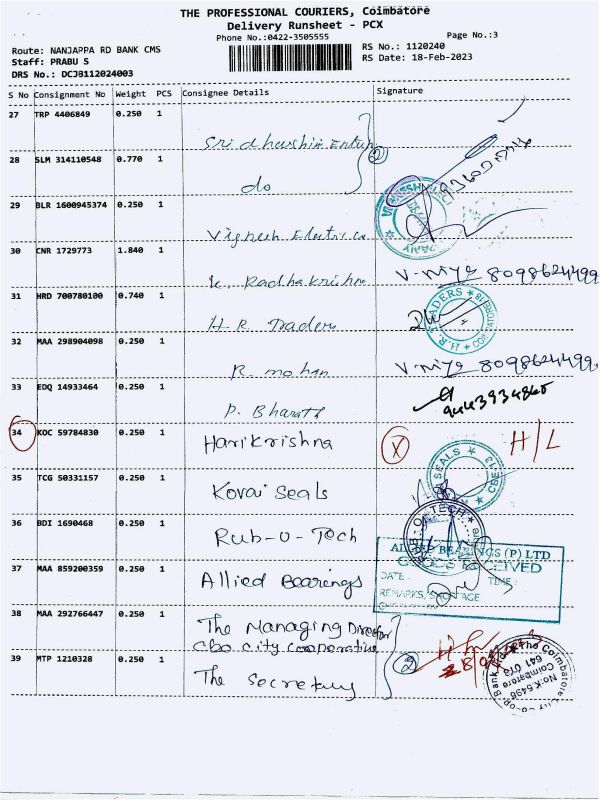 THE PROFESSIONAL COURIERS, Coimbatore
Delivery Runsheet - PCX
Phone No.:0422-3505555
Page No.:3
Route: NANJAPPA RD BANK CMS
Staff: PRABU S
DRS No.: DCJB112024003
RS No.: 1120240
RS Date: 18-Feb-2023
S No Consignment No Weight PCS Consignee Details Signature
27 TRP 4406849 0.250 1
28 SLM 314110548 0.770 1 do 2
29 BLR 1600945374 0.250 1 Vignesh
30 CNR 1729773 1.840 1 Radhakrishn 8098624499
31 HRD 700780100 0.740 1 H.R. Traders H.R. TRADERS
32 MAA 298904098 0.250 1 R. mohan 8098624499
33 EDQ 14933464 0.250 1 P. Bharath
34 KOC 59784830 0.250 1 Harikrishna X H/L
35 TCG 50331157 0.250 1 Kovai Seals SEALS CBE
36 BDI 1690468 0.250 1 Rub-O-Tech
37 MAA 859200359 0.250 1 Allied Bearings
BEARINGS (P) LTD
DATE: TIME:
REMARKS,
38 MAA 292766447 0.250 1 The Managing Director
cbo. city cooperative
39 MTP 1210328 0.250 1 The Secretary 2
No:K.6495
Coimbatore
641 018